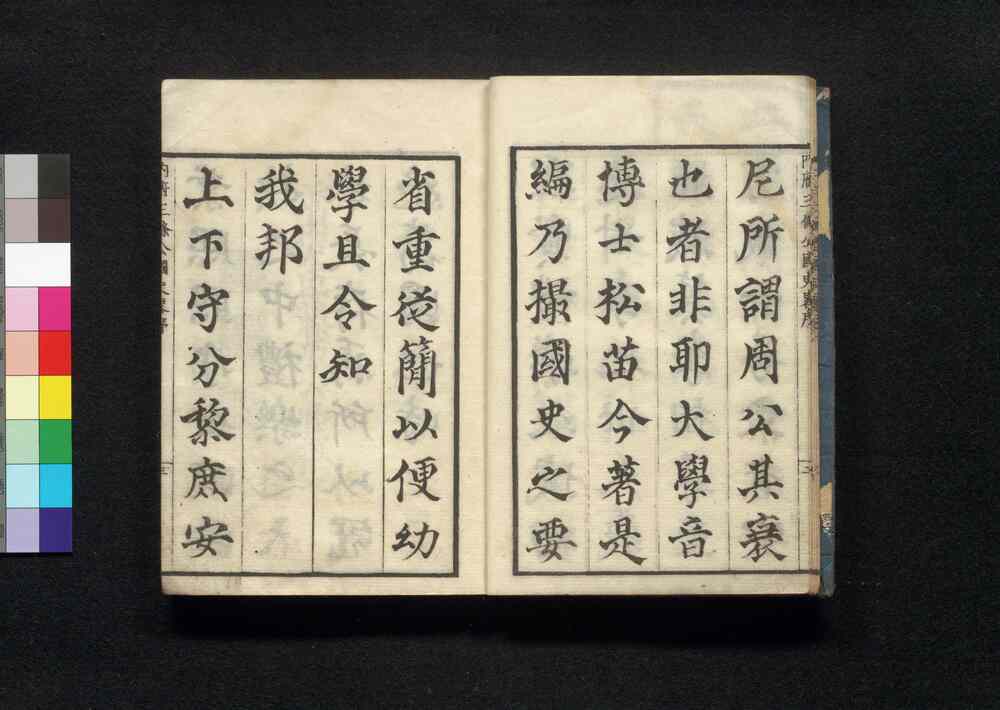 尼所謂周公其衰
也者非耶大學音
博士松苗今著是
編乃撮國史之要
省重從簡以便幼
學且令知
我邦
上下守分黎庶安